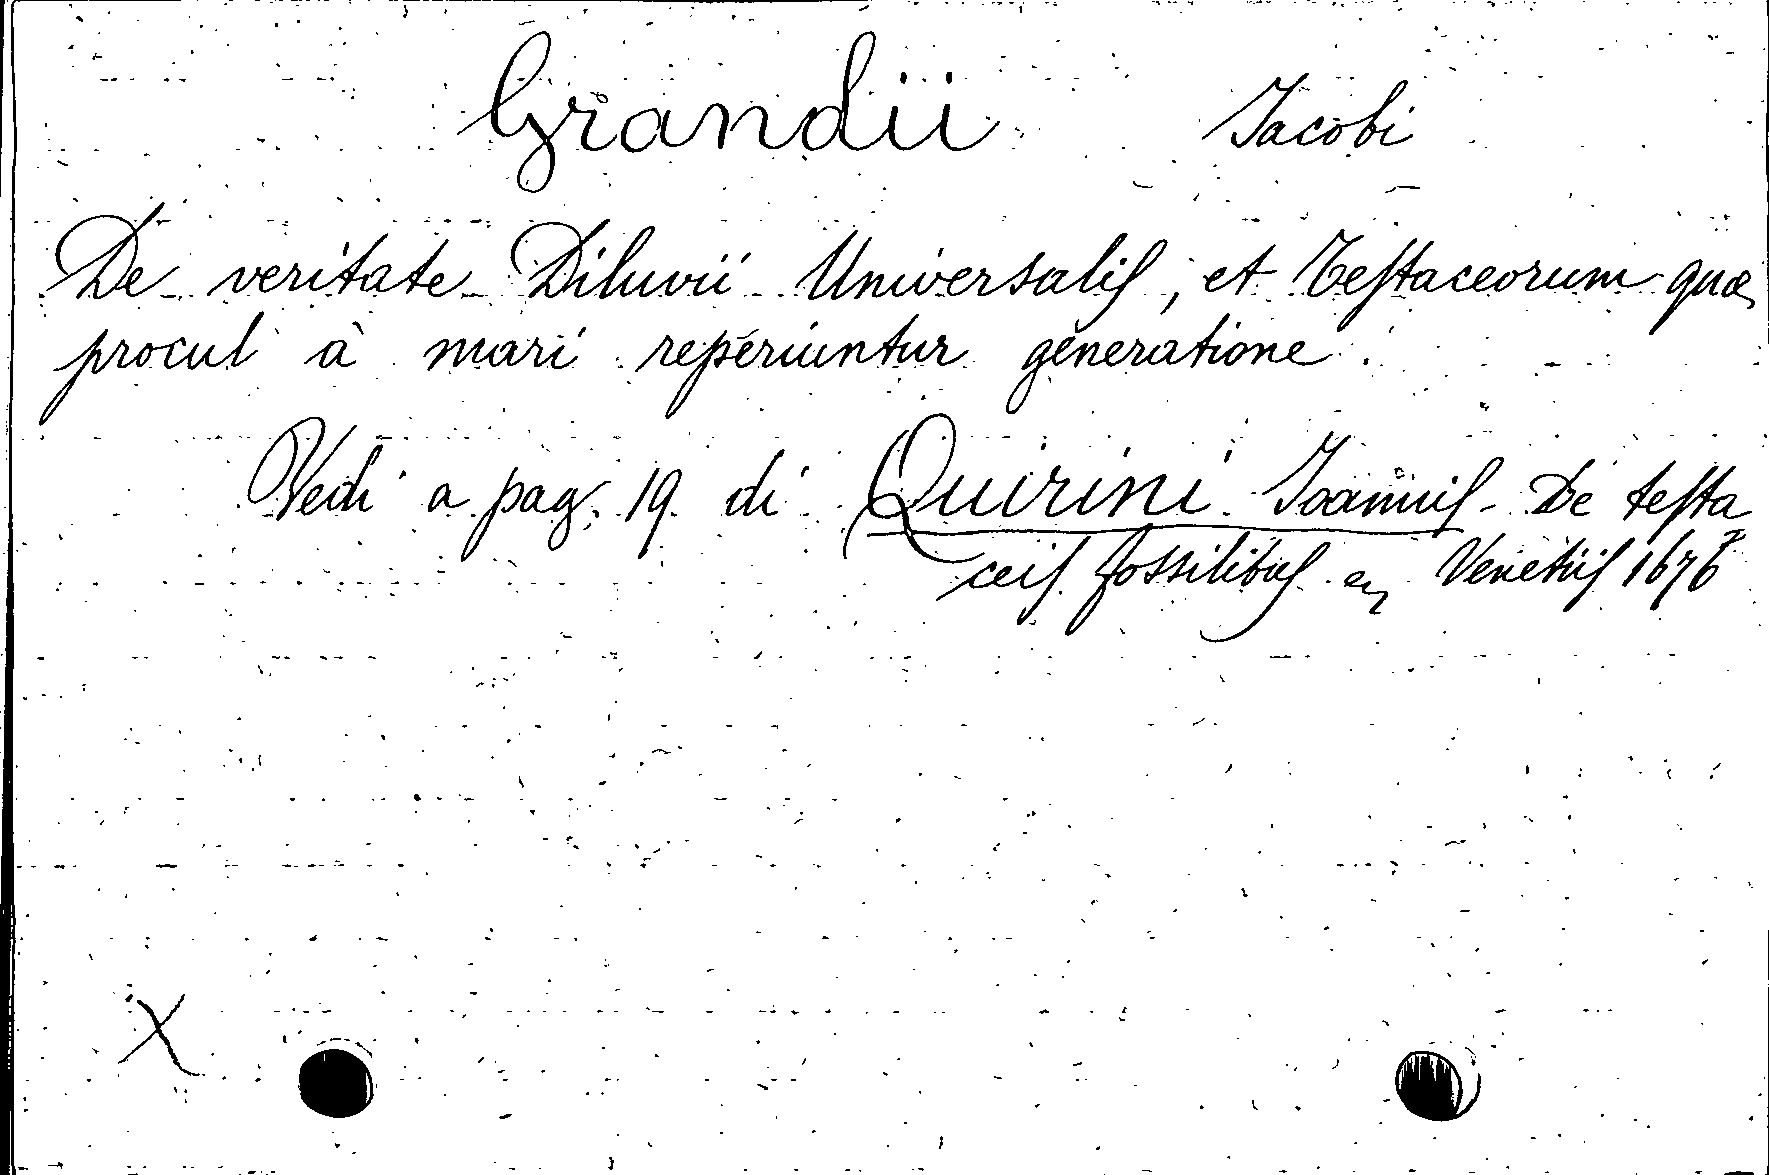 Grandii Jacobi
De veritate Diluvii Universalis, et Testaceorum quæ
procul à mari reperiuntur generatione.
Vedi a pag. 19 di Quirini Joannis - De testa
ceis fossilibus Venetiis 1676
X